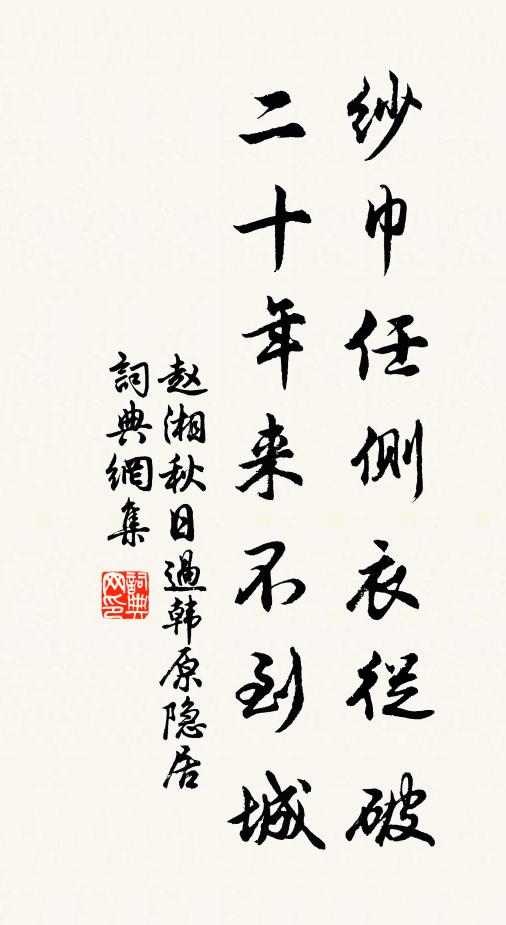 纱巾任侧衣從破
二十年来不到城
赵湘秋日過韩原隐居
詞典網集
詞典网印